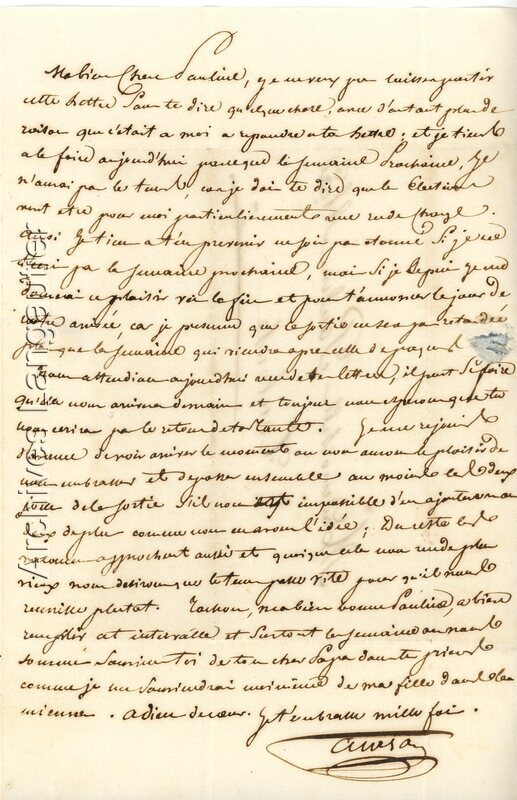 Ma bien Chere Pauline, je ne veux pas laisser partir
cette lettre Sans te dire quelque chose, avec d'autant plus de
raison que c'était a moi a repondre a ta lettre; et je tiens
a le faire aujourd'hui parceque la semaine Prochaine, Je
n'aurai pas le tems, car je dois te dire que les Elections
vont etre pour moi particulierement une rude Charge.
Ainsi Je tiens a t'en prevenir ne sois pas etonnée Si je ne
t'ecris pas la semaine prochaine, mais Si je le puis je me
donnerai ce plaisir vers la fin et pour t'annoncer le jour de
notre arrivée, car je presume que la sortie ne sera pas retardée
plus que la semaine qui viendra apres celle de paques
Nous attendions aujourd'hui une de tes lettres, il peut Se faire
qu'elle nous arrivera demain et toujours nous esperons que tu
nous ecriras par le retour de ta tante. Je me rejouis
d'avance de voir arriver le moment ou nous aurons le plaisir de
nous embrasser et de passer ensemble au moins les deux
jours de la Sortie S'il nous est impossible d'en ajouter un ou
deux de plus comme nous en avons l'idée; Du reste les
vacances approchent aussi et quoique cela nous rende plus
vieux nous desirons que le tems passe vite pour qu'il nous
reunisse plutot. Tachons, ma bien bonne Pauline, a bien
remplir cet intervalle et Surtout la Semaine ou nous
sommes Souviens toi de ton cher Papa dans tes prieres
comme je me Souviendrai moi même de ma fille dans les
miennes. Adieu de coeur. Je t'embrasse mille fois.
Archives Langeurlet